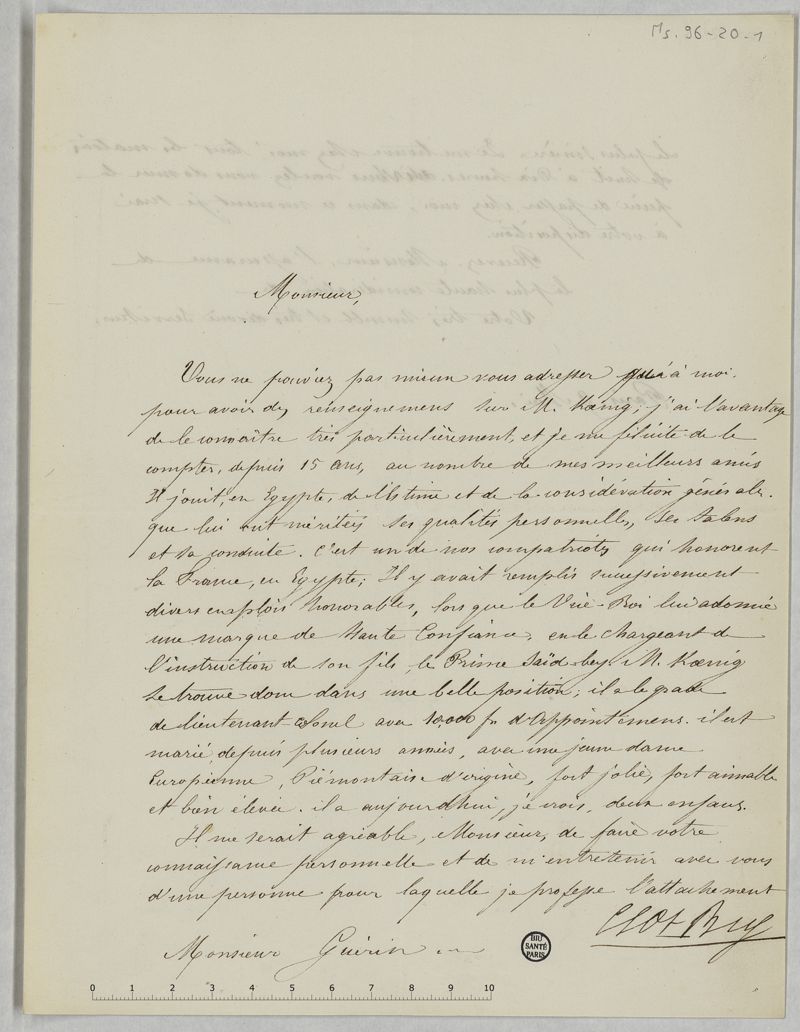 Ms. 96-20-1
Monsieur,
Vous ne pouviez pas mieux vous adresser qu'à moi
pour avoir des renseignemens sur M. Kœnig; j'ai l'avantage
de le connaître très particulièrement, et je me félicite de le
compter, depuis 15 ans, au nombre de mes meilleurs amis
Il jouit, en Egypte, de l'Estime et de la considération générale.
que lui ont méritées ses qualités personnelles, ses talens
et sa conduite. C'est un de nos compatriotes qui honorent
la France, en Egypte; Il y avait remplis successivement
divers emplois honorables, lorsque le Vice-Roi lui a donné
une marque de Haute Confiance en le chargeant de
l'instruction de son fils, le Prince Saïd bey. M. Kœnig
se trouve donc dans une belle position; il a le grade
de lieutenant-Colonel avec 10,000 fr d'Appointemens. il est
marié, depuis plusieurs années, avec une jeune dame
Européenne, Piémontaise d'origine, fort jolie, fort aimable
et bien élevée. il a aujourd'hui, je crois, deux enfans.
Il me serait agréable, Monsieur, de faire votre
connaissance personnelle et de m'entretenir avec vous
d'une personne pour laquelle je professe l'attachement
Clot Bey
Monsieur Guérin
BIU
SANTÉ
PARIS
0 1 2 3 4 5 6 7 8 9 10